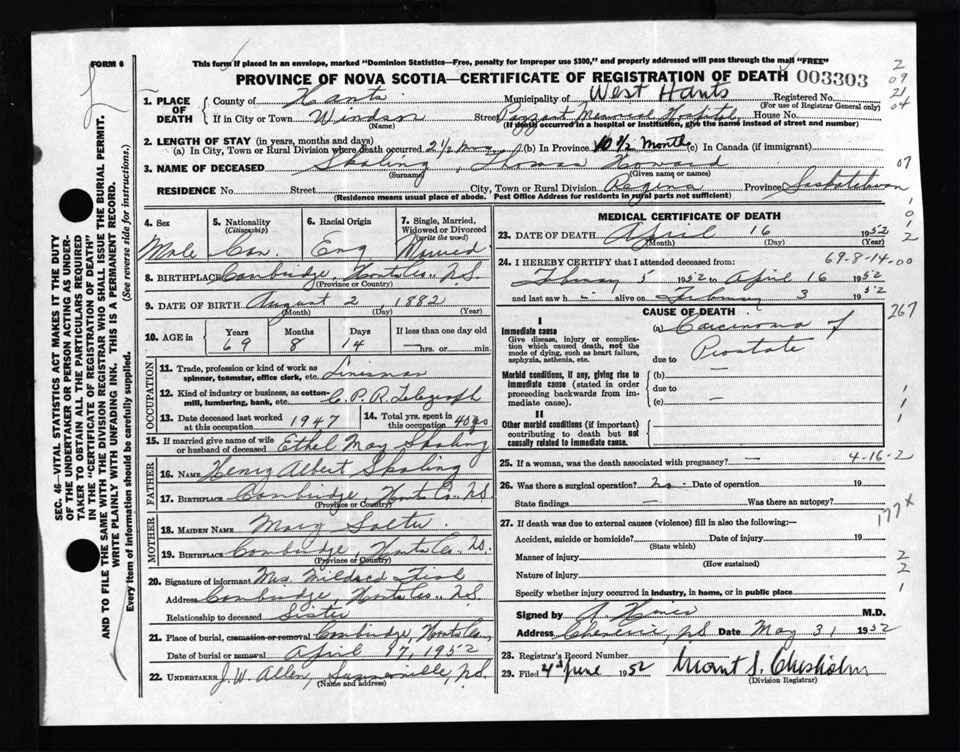 FORM 6
This form if placed in an envelope, marked "Dominion Statistics—Free, penalty for improper use $300," and properly addressed will pass through the mail "FREE"
PROVINCE OF NOVA SCOTIA—CERTIFICATE OF REGISTRATION OF DEATH 003303
2
09
21
04
1. PLACE OF DEATH
County of Hants Municipality of West Hants Registered No.
(For use of Registrar General only)
If in City or Town Windsor Street Payzant Memorial Hospital House No.
(Name) (If death occurred in a hospital or institution, give the name instead of street and number)
2. LENGTH OF STAY (in years, months and days)
(a) In City, Town or Rural Division where death occurred 2½ mos (b) In Province 10½ Months (c) In Canada (if immigrant)
3. NAME OF DECEASED Skaling, Thomas Howard 07
(Surname) (Given name or names)
RESIDENCE No. Street City, Town or Rural Division Regina Province Saskatchewan
(Residence means usual place of abode. Post Office Address for residents in rural parts not sufficient)
SEC. 46—VITAL STATISTICS ACT MAKES IT THE DUTY
OF THE UNDERTAKER OR PERSON ACTING AS UNDER-
TAKER TO OBTAIN ALL THE PARTICULARS REQUIRED
IN THE "CERTIFICATE OF REGISTRATION OF DEATH"
AND TO FILE THE SAME WITH THE DIVISION REGISTRAR WHO SHALL ISSUE THE BURIAL PERMIT.
WRITE PLAINLY WITH UNFADING INK. THIS IS A PERMANENT RECORD.
Every item of information should be carefully supplied. (See reverse side for instructions.)
4. Sex 5. Nationality (Citizenship) 6. Racial Origin 7. Single, Married, Widowed or Divorced (write the word)
Male Can. Eng Married
8. BIRTHPLACE Cambridge, Hants Co. N.S.
(Province or Country)
9. DATE OF BIRTH August 2, 1882
(Month) (Day) (Year)
10. AGE in Years Months Days If less than one day old
69 8 14 hrs. or min.
OCCUPATION
11. Trade, profession or kind of work as spinner, teamster, office clerk, etc. Linesman
12. Kind of industry or business, as cotton-mill, lumbering, bank, etc. C.P.R. Telegraph
13. Date deceased last worked at this occupation 1947 14. Total yrs. spent in this occupation 40 yrs
15. If married give name of wife or husband of deceased Ethel May Skaling
FATHER
16. NAME Henry Albert Skaling
17. BIRTHPLACE Cambridge, Hants Co. N.S.
(Province or Country)
MOTHER
18. MAIDEN NAME Mary Salter
19. BIRTHPLACE Cambridge, Hants Co. N.S.
(Province or Country)
20. Signature of informant Mrs. Mildred Fish
Address Cambridge, Hants Co. N.S.
Relationship to deceased Sister
21. Place of burial, cremation or removal Cambridge, Hants Co.
Date of burial or removal April 17, 1952
22. UNDERTAKER J. W. Allen, Summerville, N.S.
(Name and address)
MEDICAL CERTIFICATE OF DEATH
23. DATE OF DEATH April 16 1952
(Month) (Day) (Year)
69-8-14-00
24. I HEREBY CERTIFY that I attended deceased from:
5 1952 to April 16 1952
and last saw h i alive on 3 1952
CAUSE OF DEATH 267
I
Immediate cause
Give disease, injury or complication which caused death, not the mode of dying, such as heart failure, asphyxia, asthenia, etc.
(a) Carcinoma of
Prostate
due to
Morbid conditions, if any, giving rise to immediate cause (stated in order proceeding backwards from immediate cause).
(b) —
due to
(c) —
II
Other morbid conditions (if important) contributing to death but not causally related to immediate cause.
25. If a woman, was the death associated with pregnancy? — 4-16-2
26. Was there a surgical operation? no. Date of operation 19
State findings — Was there an autopsy?
177x
27. If death was due to external causes (violence) fill in also the following:—
Accident, suicide or homicide? Date of injury 19
(State which)
Manner of injury
(How sustained)
Nature of injury
Specify whether injury occurred in industry, in home, or in public place
2
2
1
Signed by M.D.
Address Cheverie, N.S. Date May 31 1952
28. Registrar's Record Number
29. Filed 4th June 1952 Grant S. Chisholm
(Division Registrar)